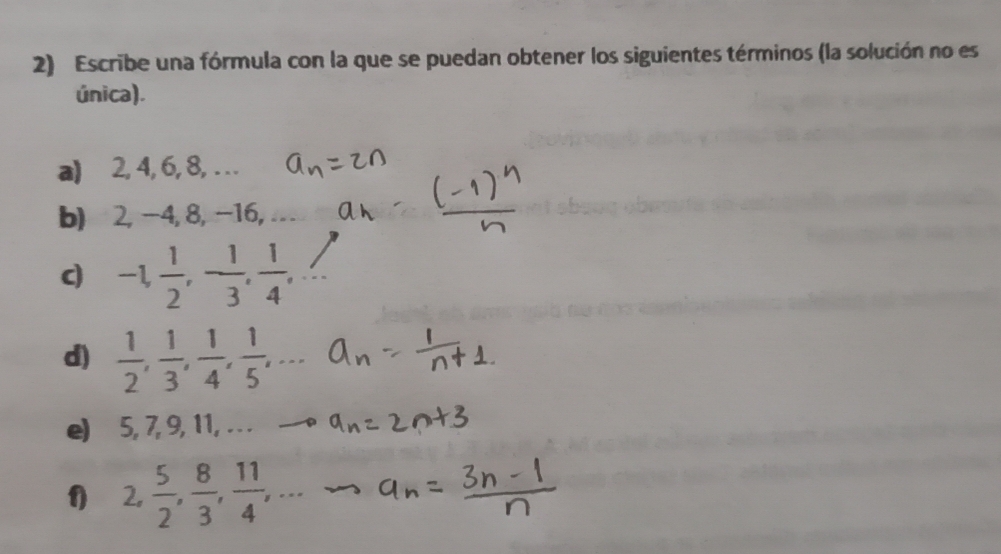 2) Escribe una fórmula con la que se puedan obtener los siguientes términos (la solución no es
única).
a) 2, 4, 6, 8, ... aₙ = 2n
b) 2, −4, 8, −16, ... aₙ = (-1)ⁿ/n
c) −1, 1/2, −1/3, 1/4, ...
d) 1/2, 1/3, 1/4, 1/5, ... aₙ = 1/n+1.
e) 5, 7, 9, 11, ... → aₙ = 2n+3
f) 2, 5/2, 8/3, 11/4, ... → aₙ = 3n - 1/n